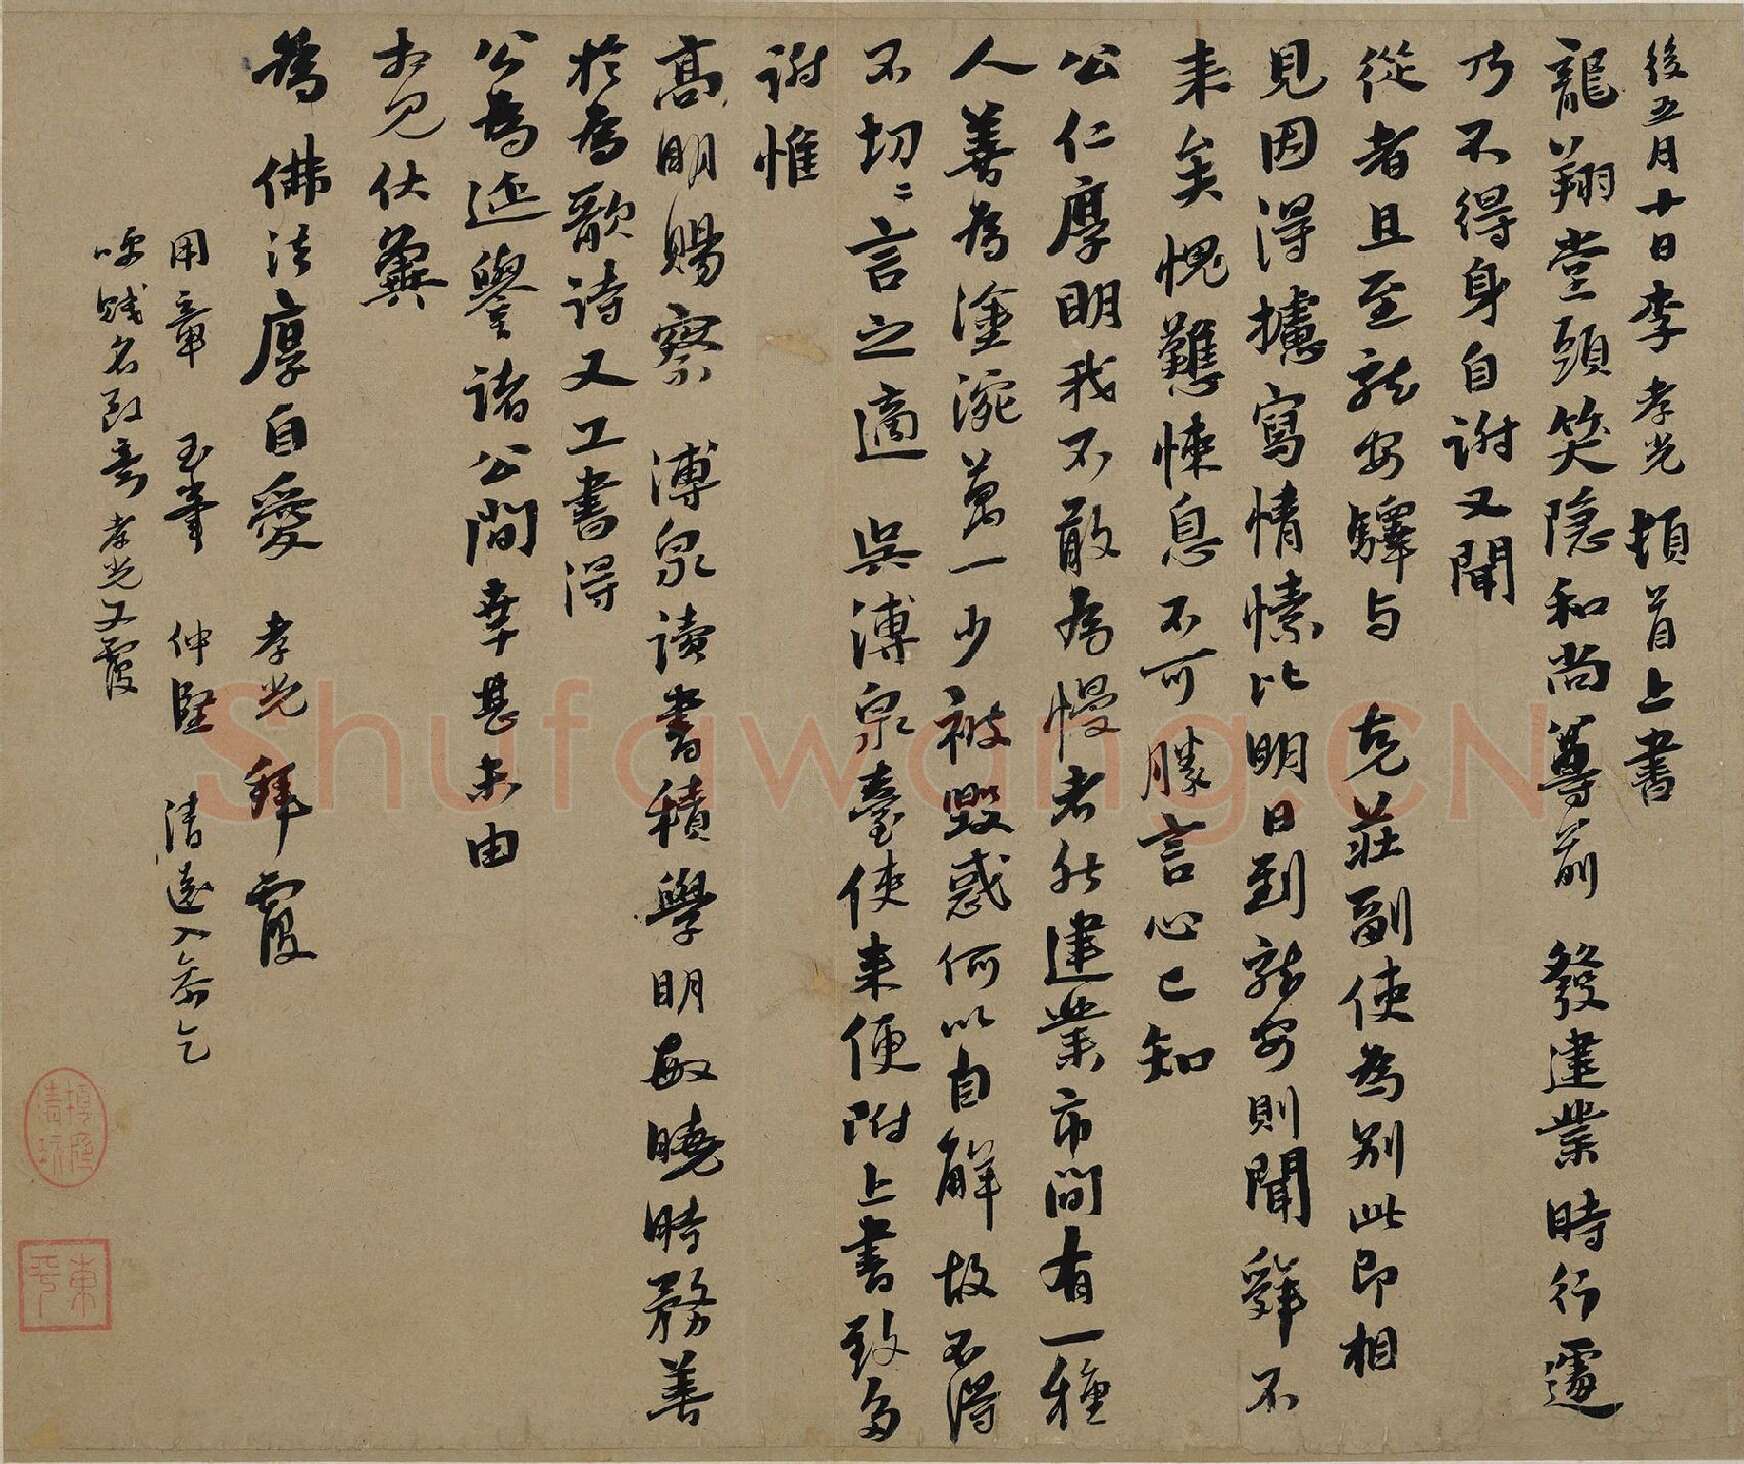 後五月十日李孝光頓首上書
龍翔堂頭笑隱和尚尊前 發建業時行遽
乃不得身自謝又聞
從者且至龍安驛與 克莊副使為別此即相
見因得攄寫情愫比明日到龍安則聞舜不
来矣愧歎悚息不可勝言心已知
公仁厚明我不敢為慢者然建業市間有一種
人善為塗涴萬一少被毀惑何以自解故不得
不切〻言之適 吳溥泉臺使来便附上書致多
謝惟
高明賜察 溥泉讀書積學明敏曉時務善
於為歌詩又工書得
公為延譽諸公間幸甚未由
相見伏冀
為 佛法厚自愛 孝光拜覆
用章 玉峯 仲堅 清遠入
賤名致意孝光又覆
東平
Shufawang.CN